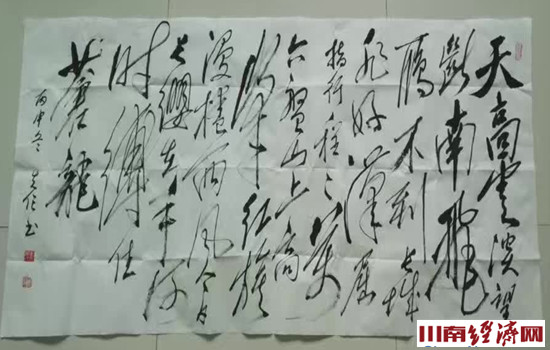 天高雲淡望
斷南飛
鴈不到長城
非好漢屈
指行程二萬
六盤山上高
峰红旗
漫捲西風今日
長纓在手何
時縛住
蒼龍
丙申冬 书
川南经济网